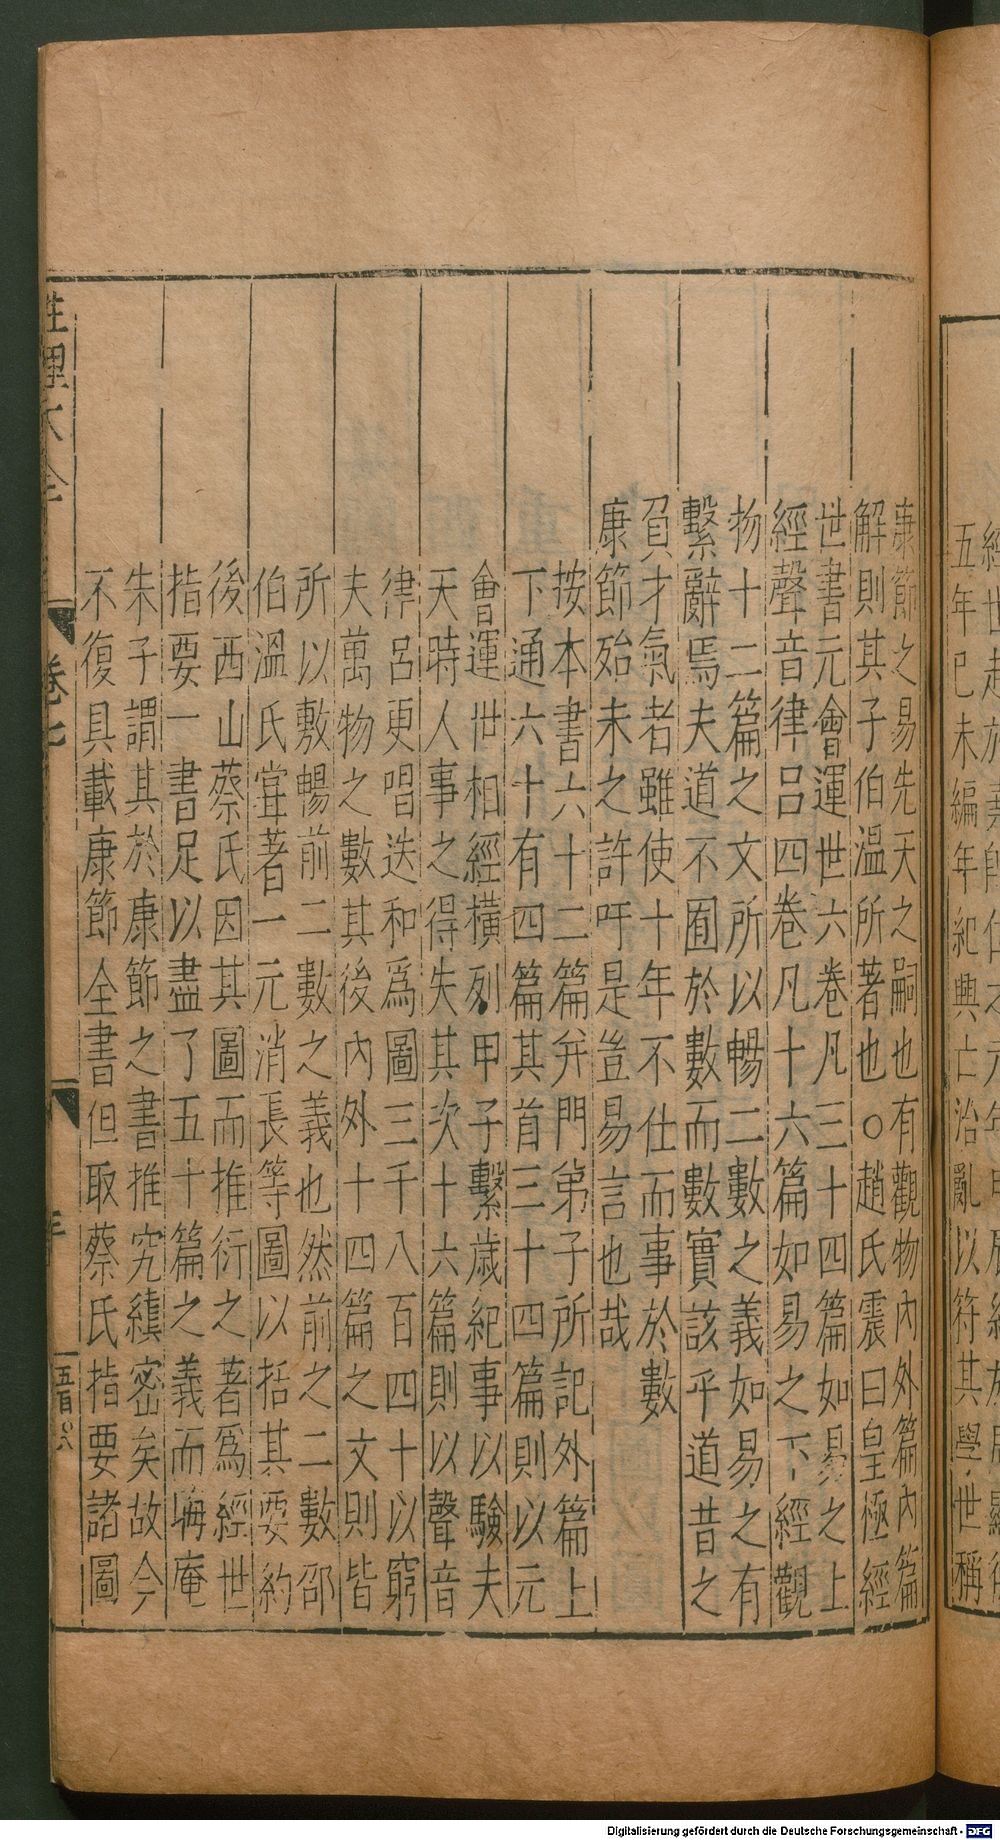 經世起於堯即位之元年甲辰終於周顯德
五年己未編年紀興亡治亂以符其學世稱
康節之易先天之嗣也有觀物內外篇內篇
解則其子伯温所著也○趙氏震曰皇極經
世書元會運世六卷凡三十四篇如易之上
經聲音律呂四卷凡十六篇如易之下經觀
物十二篇之文所以暢二數之義如易之有
繫辭焉夫道不囿於數而數實該乎道昔之
負才氣者雖使十年不仕而事於數
康節殆未之許吁是豈易言也哉
按本書六十二篇并門弟子所記外篇上
下通六十有四篇其首三十四篇則以元
會運世相經橫列甲子繫歲紀事以驗夫
天時人事之得失其次十六篇則以聲音
律呂更唱迭和爲圖三千八百四十以窮
夫萬物之數其後內外十四篇之文則皆
所以敷暢前二數之義也然前之二數邵
伯溫氏甞著一元消長等圖以括其要約
後西山蔡氏因其圖而推衍之著爲經世
指要一書足以盡了五十篇之義而晦庵
朱子謂其於康節之書推究縝密矣故今
不復具載康節全書但取蔡氏指要諸圖
性理大全 卷七
Digitalisierung gefördert durch die Deutsche Forschungsgemeinschaft - DFG